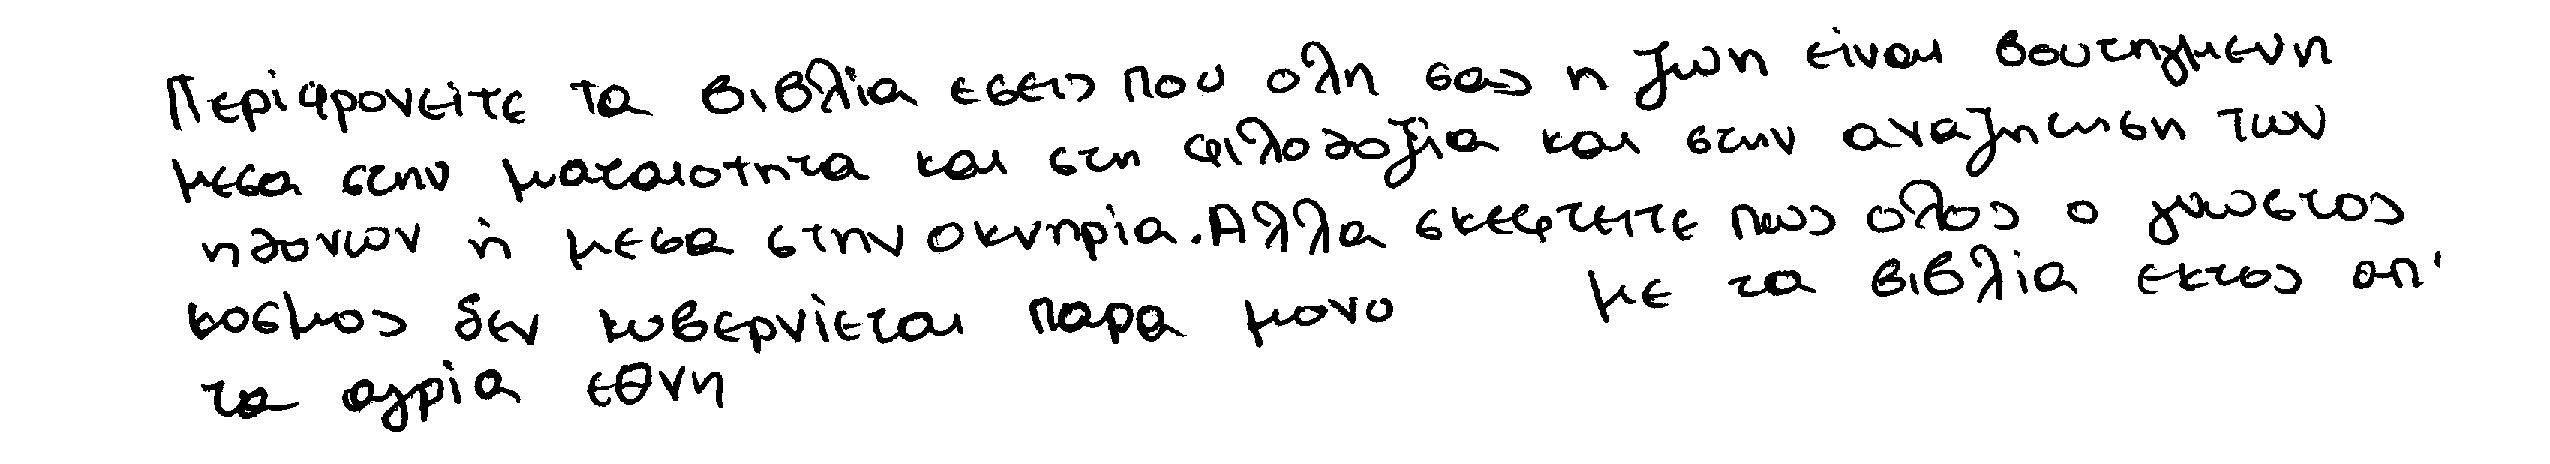 Περιφρονείτε τα βιβλία εσεις που ολη σας η ζωη είναι βουτηγμενη
μεσα στην ματαιοτητα και στη φιλοδοξια και στην αναζητηση των
ηδονων ή μεσα στην οκνηρία. Αλλα σκεφτειτε πως ολος ο γνωστος
κοσμος δεν κυβερνίεται παρα μονο με τα βιβλία εκτος απ'
τα αγρία εθνη